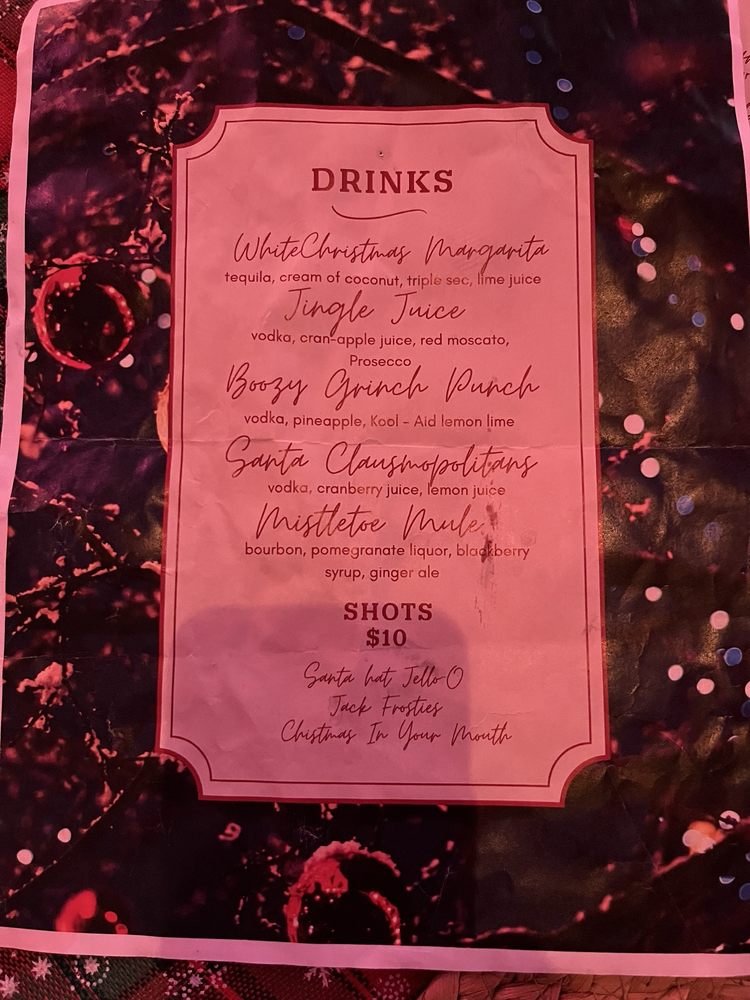 DRINKS
WhiteChristmas Margarita
tequila, cream of coconut, triple sec, lime juice
Jingle Juice
vodka, cran-apple juice, red moscato,
Prosecco
Boozy Grinch Punch
vodka, pineapple, Kool - Aid lemon lime
Santa Clausmopolitans
vodka, cranberry juice, lemon juice
Mistletoe Mule
bourbon, pomegranate liquor, blackberry
syrup, ginger ale
SHOTS
$10
Santa hat Jello-O
Jack Frosties
Chistmas In Your Mouth